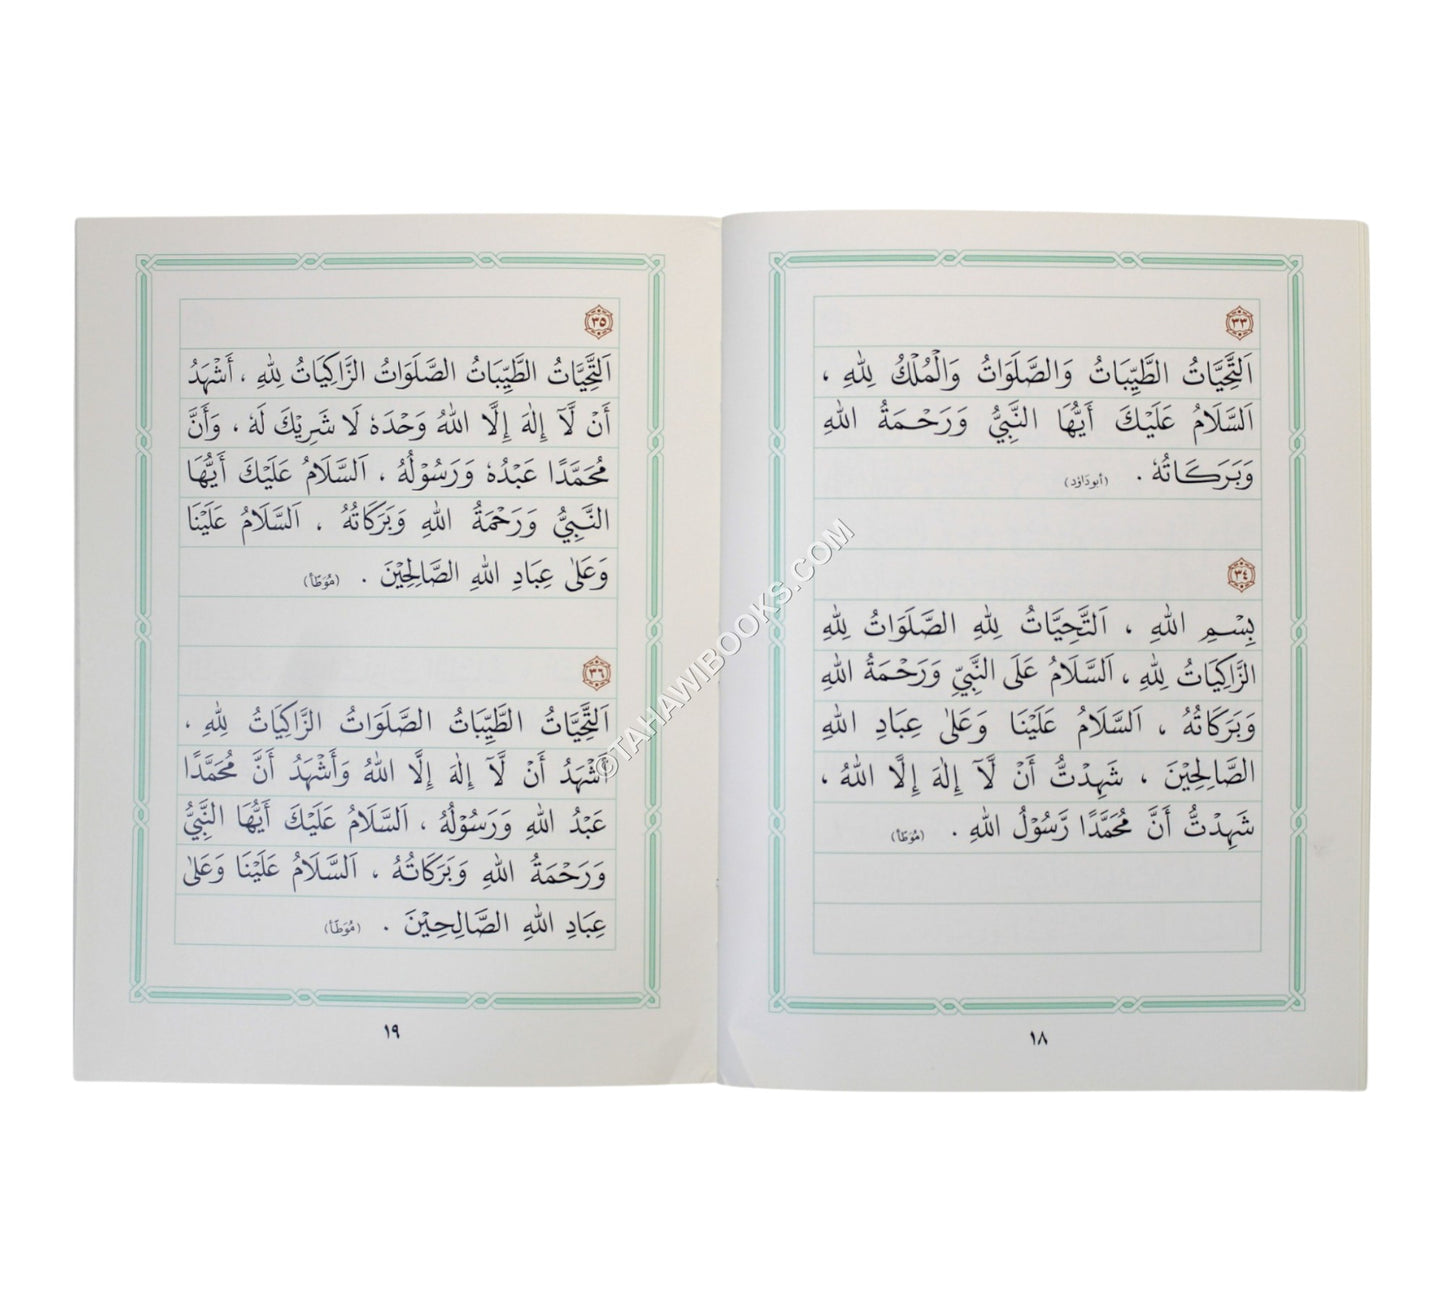 ٣٣
اَلتَّحِيَّاتُ الطَّيِّبَاتُ وَالصَّلَوَاتُ وَالْمُلْكُ لِلّٰهِ ،
اَلسَّلَامُ عَلَيْكَ أَيُّهَا النَّبِيُّ وَرَحْمَةُ اللّٰهِ
وَبَرَكَاتُهٗ . (أبو دَاوٗد)
٣٤
بِسْمِ اللّٰهِ ، اَلتَّحِيَّاتُ لِلّٰهِ الصَّلَوَاتُ لِلّٰهِ
الزَّاكِيَاتُ لِلّٰهِ ، اَلسَّلَامُ عَلَى النَّبِيِّ وَرَحْمَةُ اللّٰهِ
وَبَرَكَاتُهُ ، اَلسَّلَامُ عَلَيْنَا وَعَلٰى عِبَادِ اللّٰهِ
الصَّالِحِيْنَ ، شَهِدْتُّ أَنْ لَّآ إِلٰهَ إِلَّا اللّٰهُ ،
شَهِدْتُّ أَنَّ مُحَمَّدًا رَّسُوْلُ اللّٰهِ . (مُوَطّأ)
١٨
٣٥
اَلتَّحِيَّاتُ الطَّيِّبَاتُ الصَّلَوَاتُ الزَّاكِيَاتُ لِلّٰهِ ، أَشْهَدُ
أَنْ لَّآ إِلٰهَ إِلَّا اللّٰهُ وَحْدَهٗ لَا شَرِيْكَ لَهٗ ، وَأَنَّ
مُحَمَّدًا عَبْدُهٗ وَرَسُوْلُهُ ، اَلسَّلَامُ عَلَيْكَ أَيُّهَا
النَّبِيُّ وَرَحْمَةُ اللّٰهِ وَبَرَكَاتُهُ ، اَلسَّلَامُ عَلَيْنَا
وَعَلٰى عِبَادِ اللّٰهِ الصَّالِحِيْنَ . (مُوَطّأ)
٣٦
اَلتَّحِيَّاتُ الطَّيِّبَاتُ الصَّلَوَاتُ الزَّاكِيَاتُ لِلّٰهِ ،
أَشْهَدُ أَنْ لَّآ إِلٰهَ إِلَّا اللّٰهُ وَأَشْهَدُ أَنَّ مُحَمَّدًا
عَبْدُ اللّٰهِ وَرَسُوْلُهُ ، اَلسَّلَامُ عَلَيْكَ أَيُّهَا النَّبِيُّ
وَرَحْمَةُ اللّٰهِ وَبَرَكَاتُهُ ، اَلسَّلَامُ عَلَيْنَا وَعَلٰى
عِبَادِ اللّٰهِ الصَّالِحِيْنَ . (مُوَطّأ)
١٩
©TAHAWIBOOKS.COM